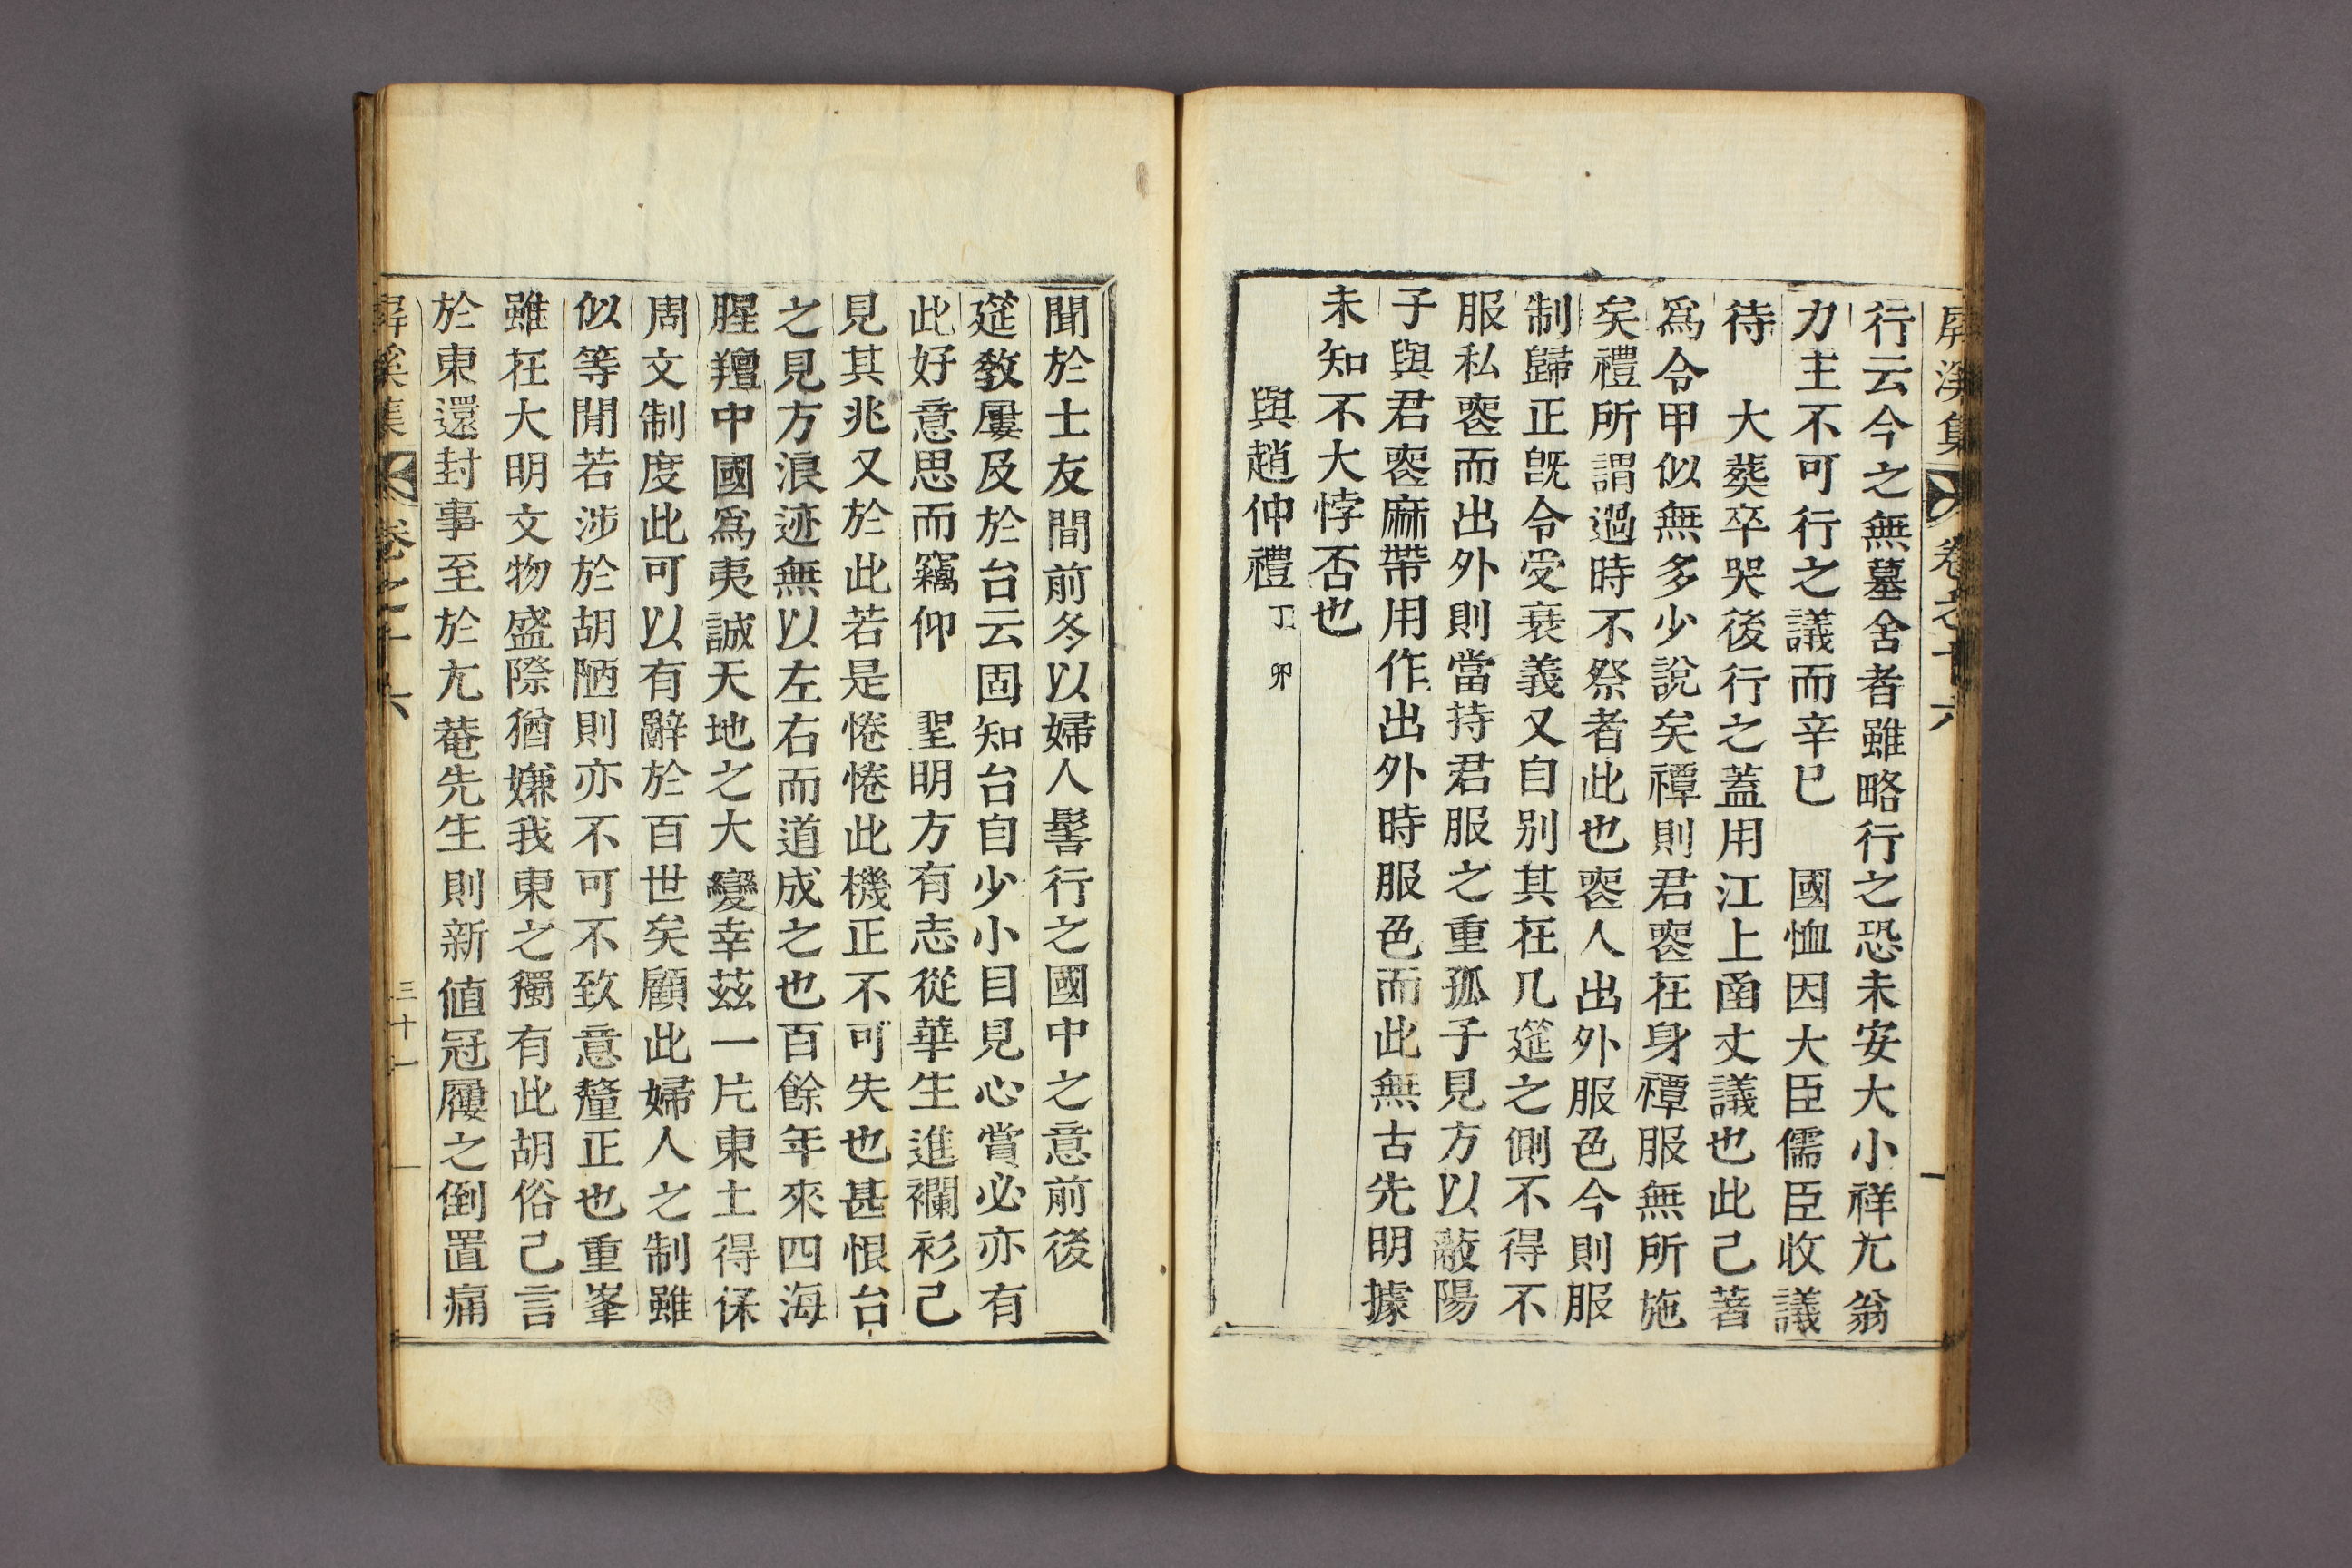 屛溪集 卷之十六
行云今之無墓舍者雖略行之恐未安大小祥尤翁
力主不可行之議而辛巳 國恤因大臣儒臣收議
待 大葬卒哭後行之蓋用江上凾丈議也此已著
爲令甲似無多少說矣禫則君喪在身禫服無所施
矣禮所謂過時不祭者此也喪人出外服色今則服
制歸正旣令受衰義又自別其在几筵之側不得不
服私喪而出外則當持君服之重孤子見方以蔽陽
子與君喪麻帶用作出外時服色而此無古先明據
未知不大悖否也
與趙仲禮 丁卯
聞於士友間前冬以婦人髻行之國中之意前後
筵敎屢及於台云固知台自少小目見心賞必亦有
此好意思而竊仰 聖明方有志從華生進襴衫已
見其兆又於此若是惓惓此機正不可失也甚恨台
之見方浪迹無以左右而道成之也百餘年來四海
腥羶中國爲夷誠天地之大變幸茲一片東土得保
周文制度此可以有辭於百世矣顧此婦人之制雖
似等閒若涉於胡陋則亦不可不致意釐正也重峯
雖在大明文物盛際猶嫌我東之獨有此胡俗已言
於東還封事至於尤菴先生則新値冠屨之倒置痛
屛溪集 卷之十六 三十一